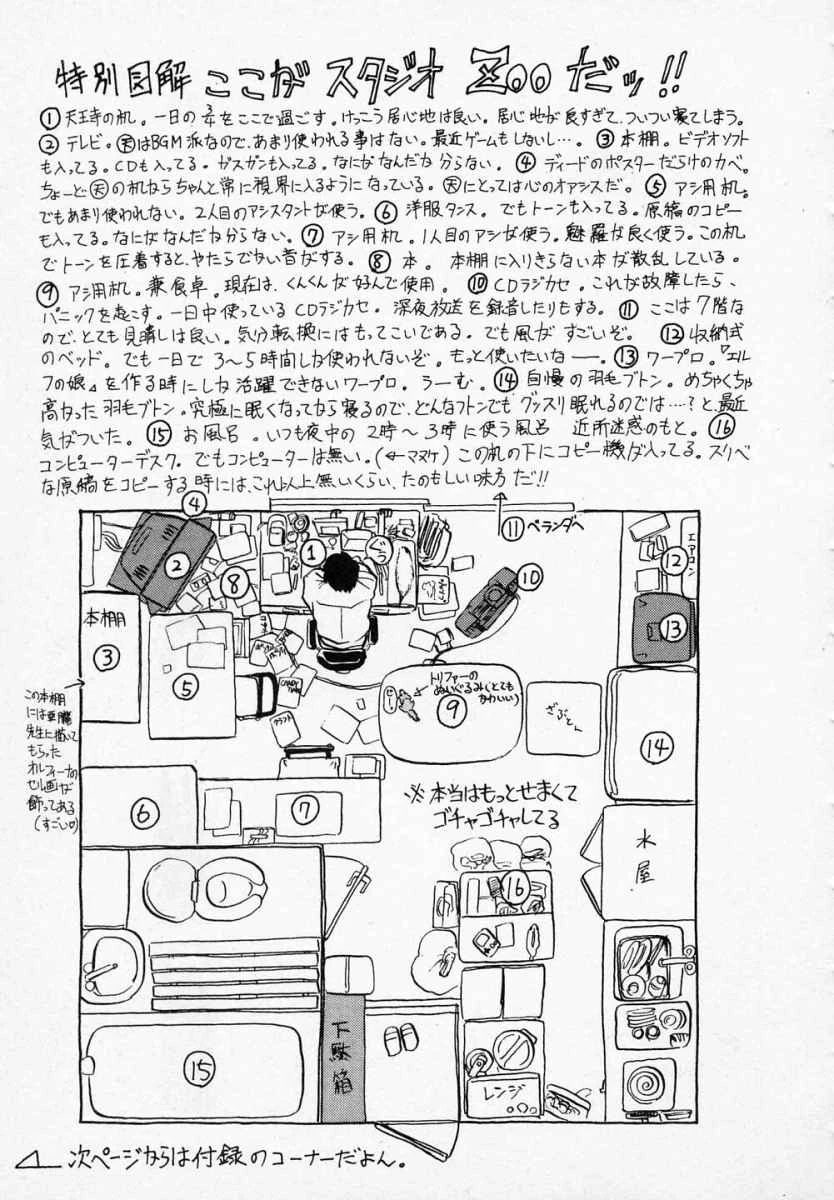 特別図解 ここが スタジオ Zoo だッ!!
①天王寺の机。一日の多をここで過ごす。けっこう居心地は良い。居心地が良すぎて、ついつい寝てしまう。
②テレビ。㊝はBGM派なので、あまり使われる事はない。最近ゲームもしないし…。③本棚。ビデオソフト
も入ってる。CDも入ってる。ガスガンも入ってる。なにがなんだか分らない。④ディードのポスターだらけのカベ。
ちょーど の机からちゃんと常に視界に入るようになっている。 にとっては心のオアシスだ。⑤アシ用机。
でもあまり使われない。2人目のアシスタントが使う。⑥洋服タンス。でもトーンも入ってる。原稿のコピー
も入ってる。なにがなんだか分らない。⑦アシ用机。1人目のアシが使う。魅羅が良く使う。この机
でトーンを圧着すると、やたらでかい音がする。⑧本。本棚に入りきらない本が散乱している。
⑨アシ用机。兼食卓。現在は、くんくんが好んで使用。⑩CDラジカセ。これが故障したら、
パニックを起こす。一日中使っているCDラジカセ。深夜放送を録音したりもする。⑪ここは7階な
ので、とても見晴しは良い。気分転換にはもってこいである。でも風がすごいぞ。⑫収納式
のベッド。でも一日で3〜5時間しか使われないぞ。もっと使いたいなー。⑬ワープロ。『エル
フの娘』を作る時にしか活躍できないワープロ。うーむ。⑭自慢の羽毛ブトン。めちゃくちゃ
高かった羽毛ブトン。究極に眠くなってから寝るので、どんなフトンでもグッスリ眠れるのでは…?と、最近
気がついた。⑮お風呂。いつも夜中の2時〜3時に使う風呂 近所迷惑のもと。⑯
コンピューターデスク。でもコンピューターは無い。(←マヌケ)この机の下にコピー機が入ってる。スリベ
な原稿をコピーする時には、これ以上無いくらい、たのもしい味方だ!!
④
⑪ベランダへ
①
②
⑧
⑩
エアコン
⑫
⑬
本棚
③
⑤
トリファーの
ぬいぐるみ(とても
かわいい)
⑨
ざぶとん
⑭
この本棚
には
先生に描いて
もらった
オルフィーナの
セル画が
飾ってある
(すごい)
⑥
⑦
※本当はもっとせまくて
ゴチャゴチャしてる
水屋
⑯
下駄箱
⑮
レンジ
次ページからは付録のコーナーだよん。